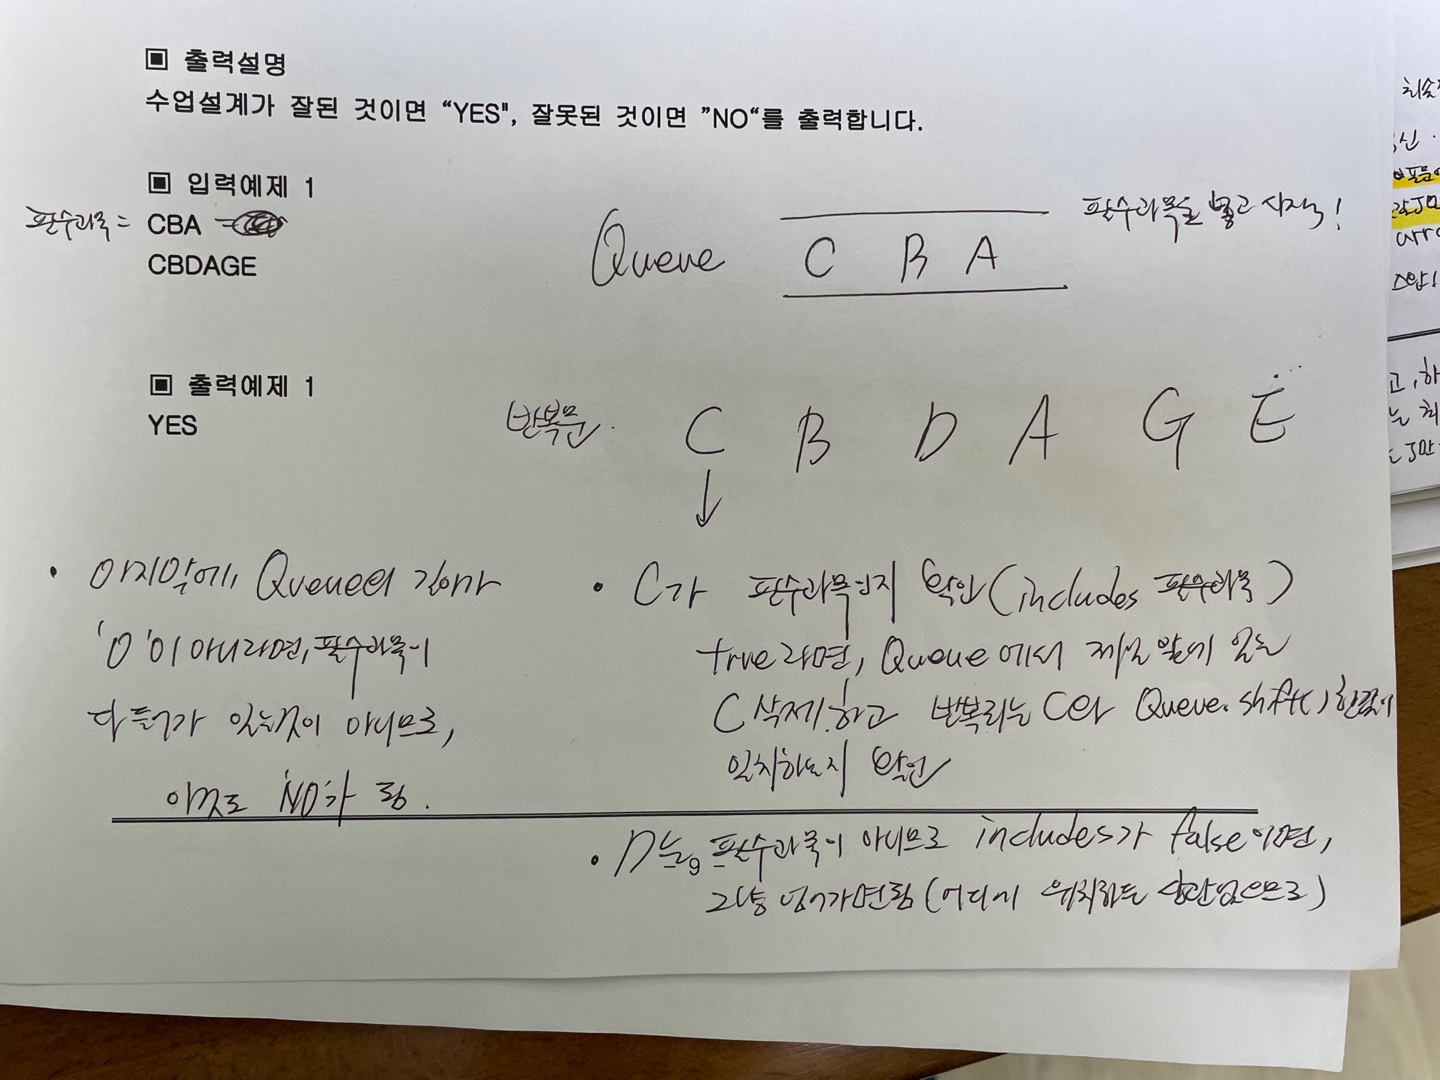 ▣ 출력설명
수업설계가 잘된 것이면 “YES", 잘못된 것이면 ”NO“를 출력합니다.
▣ 입력예제 1
필수과목 = CBA
CBDAGE
Queue C B A 필수과목을 넣고 시작!
▣ 출력예제 1
YES
반복문. C B D A G E
↓
• 마지막에, Queue의 길이가
'0'이 아니라면, 필수과목이
다 들어가 있는것이 아니므로,
이것도 'NO'가 됨.
• C가 필수과목인지 확인 (includes 필수과목)
true라면, Queue에서 제일 앞에 있는
C 삭제하고 반복되는 C와 Queue.shift() 한값이
일치하는지 확인
• D는, 필수과목이 아니므로 includes가 false이면,
그냥 넘어가면됨 (어디에 위치하든 상관없으므로)
9
최솟
신
arra
고, 하